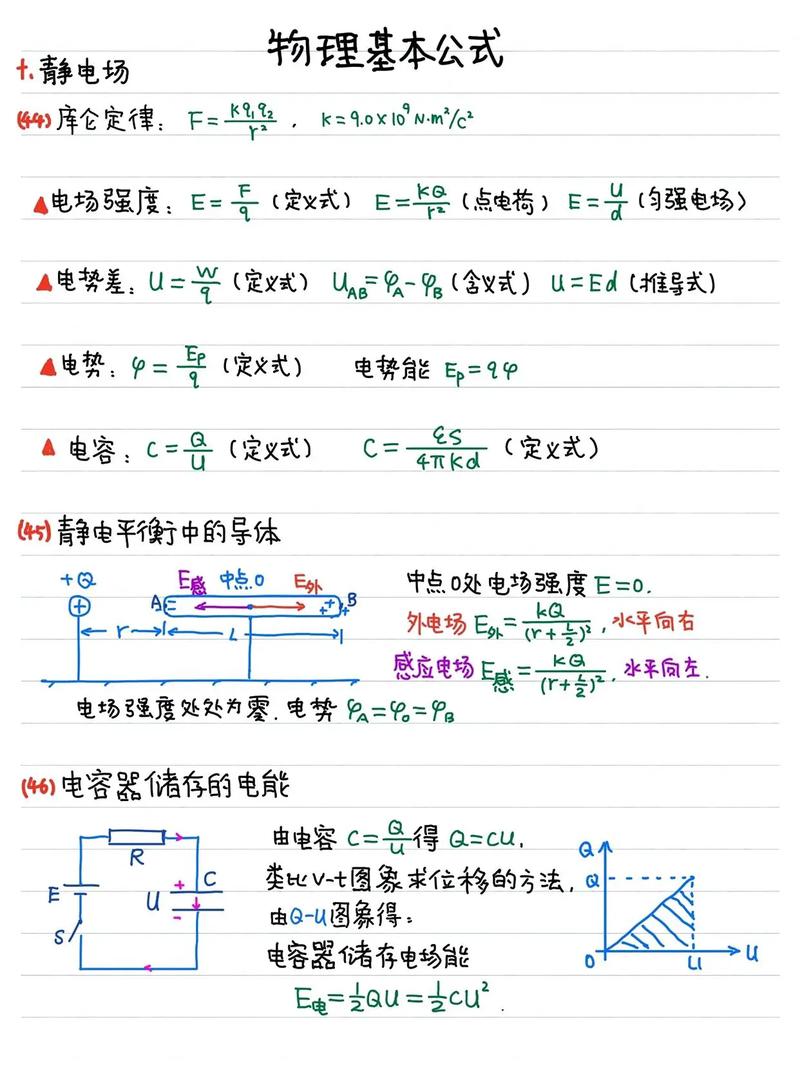 物理基本公式
十.静电场
(44)库仑定律: F=kq₁q₂/r², k=9.0×10⁹N·m²/c²
▲电场强度: E=F/q (定义式) E=kQ/r² (点电荷) E=U/d (匀强电场)
▲电势差: U=W/q (定义式) U_AB=φ_A-φ_B (含义式) U=Ed (推导式)
▲电势: φ=Ep/q (定义式) 电势能 Ep=qφ
▲电容: C=Q/U (定义式) C=εS/4πkd (定义式)
(45)静电平衡中的导体
+Q E感 中点.O E外
+ A B
r L
中点O处电场强度E=0.
外电场E外=kQ/(r+L/2)², 水平向右
感应电场E感=kQ/(r+L/2)², 水平向左.
电场强度处处为零.电势 φ_A=φ_o=φ_B
(46)电容器储存的电能
R
E U + - C
S
由电容 C=Q/U 得 Q=CU.
类比v-t图象求位移的方法,
由Q-U图象得:
电容器储存电场能
E电=1/2QU=1/2CU².
Q
Q
O U U